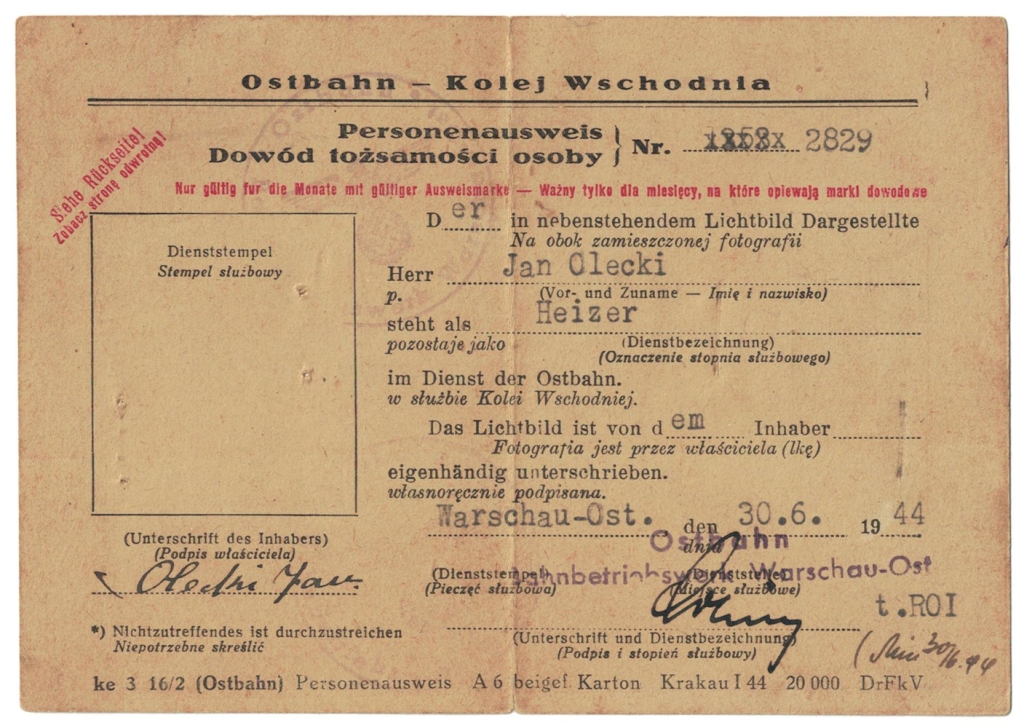 Ostbahn – Kolej Wschodnia
Siehe Rückseite!
Zobacz stronę odwrotną!
Personenausweis
Dowód tożsamości osoby } Nr. 2829
Nur gültig fur die Monate mit gültiger Ausweismarke — Ważny tylko dla miesięcy, na które opiewają marki dowodowe
Dienststempel
Stempel służbowy
Der in nebenstehendem Lichtbild Dargestellte
Na obok zamieszczonej fotografii
Herr Jan Olecki
p. (Vor- und Zuname — Imię i nazwisko)
steht als Heizer
pozostaje jako (Dienstbezeichnung)
(Oznaczenie stopnia służbowego)
im Dienst der Ostbahn.
w służbie Kolei Wschodniej.
Das Lichtbild ist von dem Inhaber
Fotografia jest przez właściciela (lkę)
eigenhändig unterschrieben.
własnoręcznie podpisana.
Warschau-Ost. den 30.6. 1944
dnia
Ostbahn
Bahnbetriebswerk Warschau-Ost
(Unterschrift des Inhabers)
(Podpis właściciela)
Olecki Jan
(Dienststempel) (Dienststelle)
(Pieczęć służbowa) (Miejsce służbowe)
t.ROI
(Unterschrift und Dienstbezeichnung)
(Podpis i stopień służbowy)
30/6.44
*) Nichtzutreffendes ist durchzustreichen
Niepotrzebne skreślić
ke 3 16/2 (Ostbahn) Personenausweis A 6 beigef Karton Krakau I 44 20 000 DrFkV